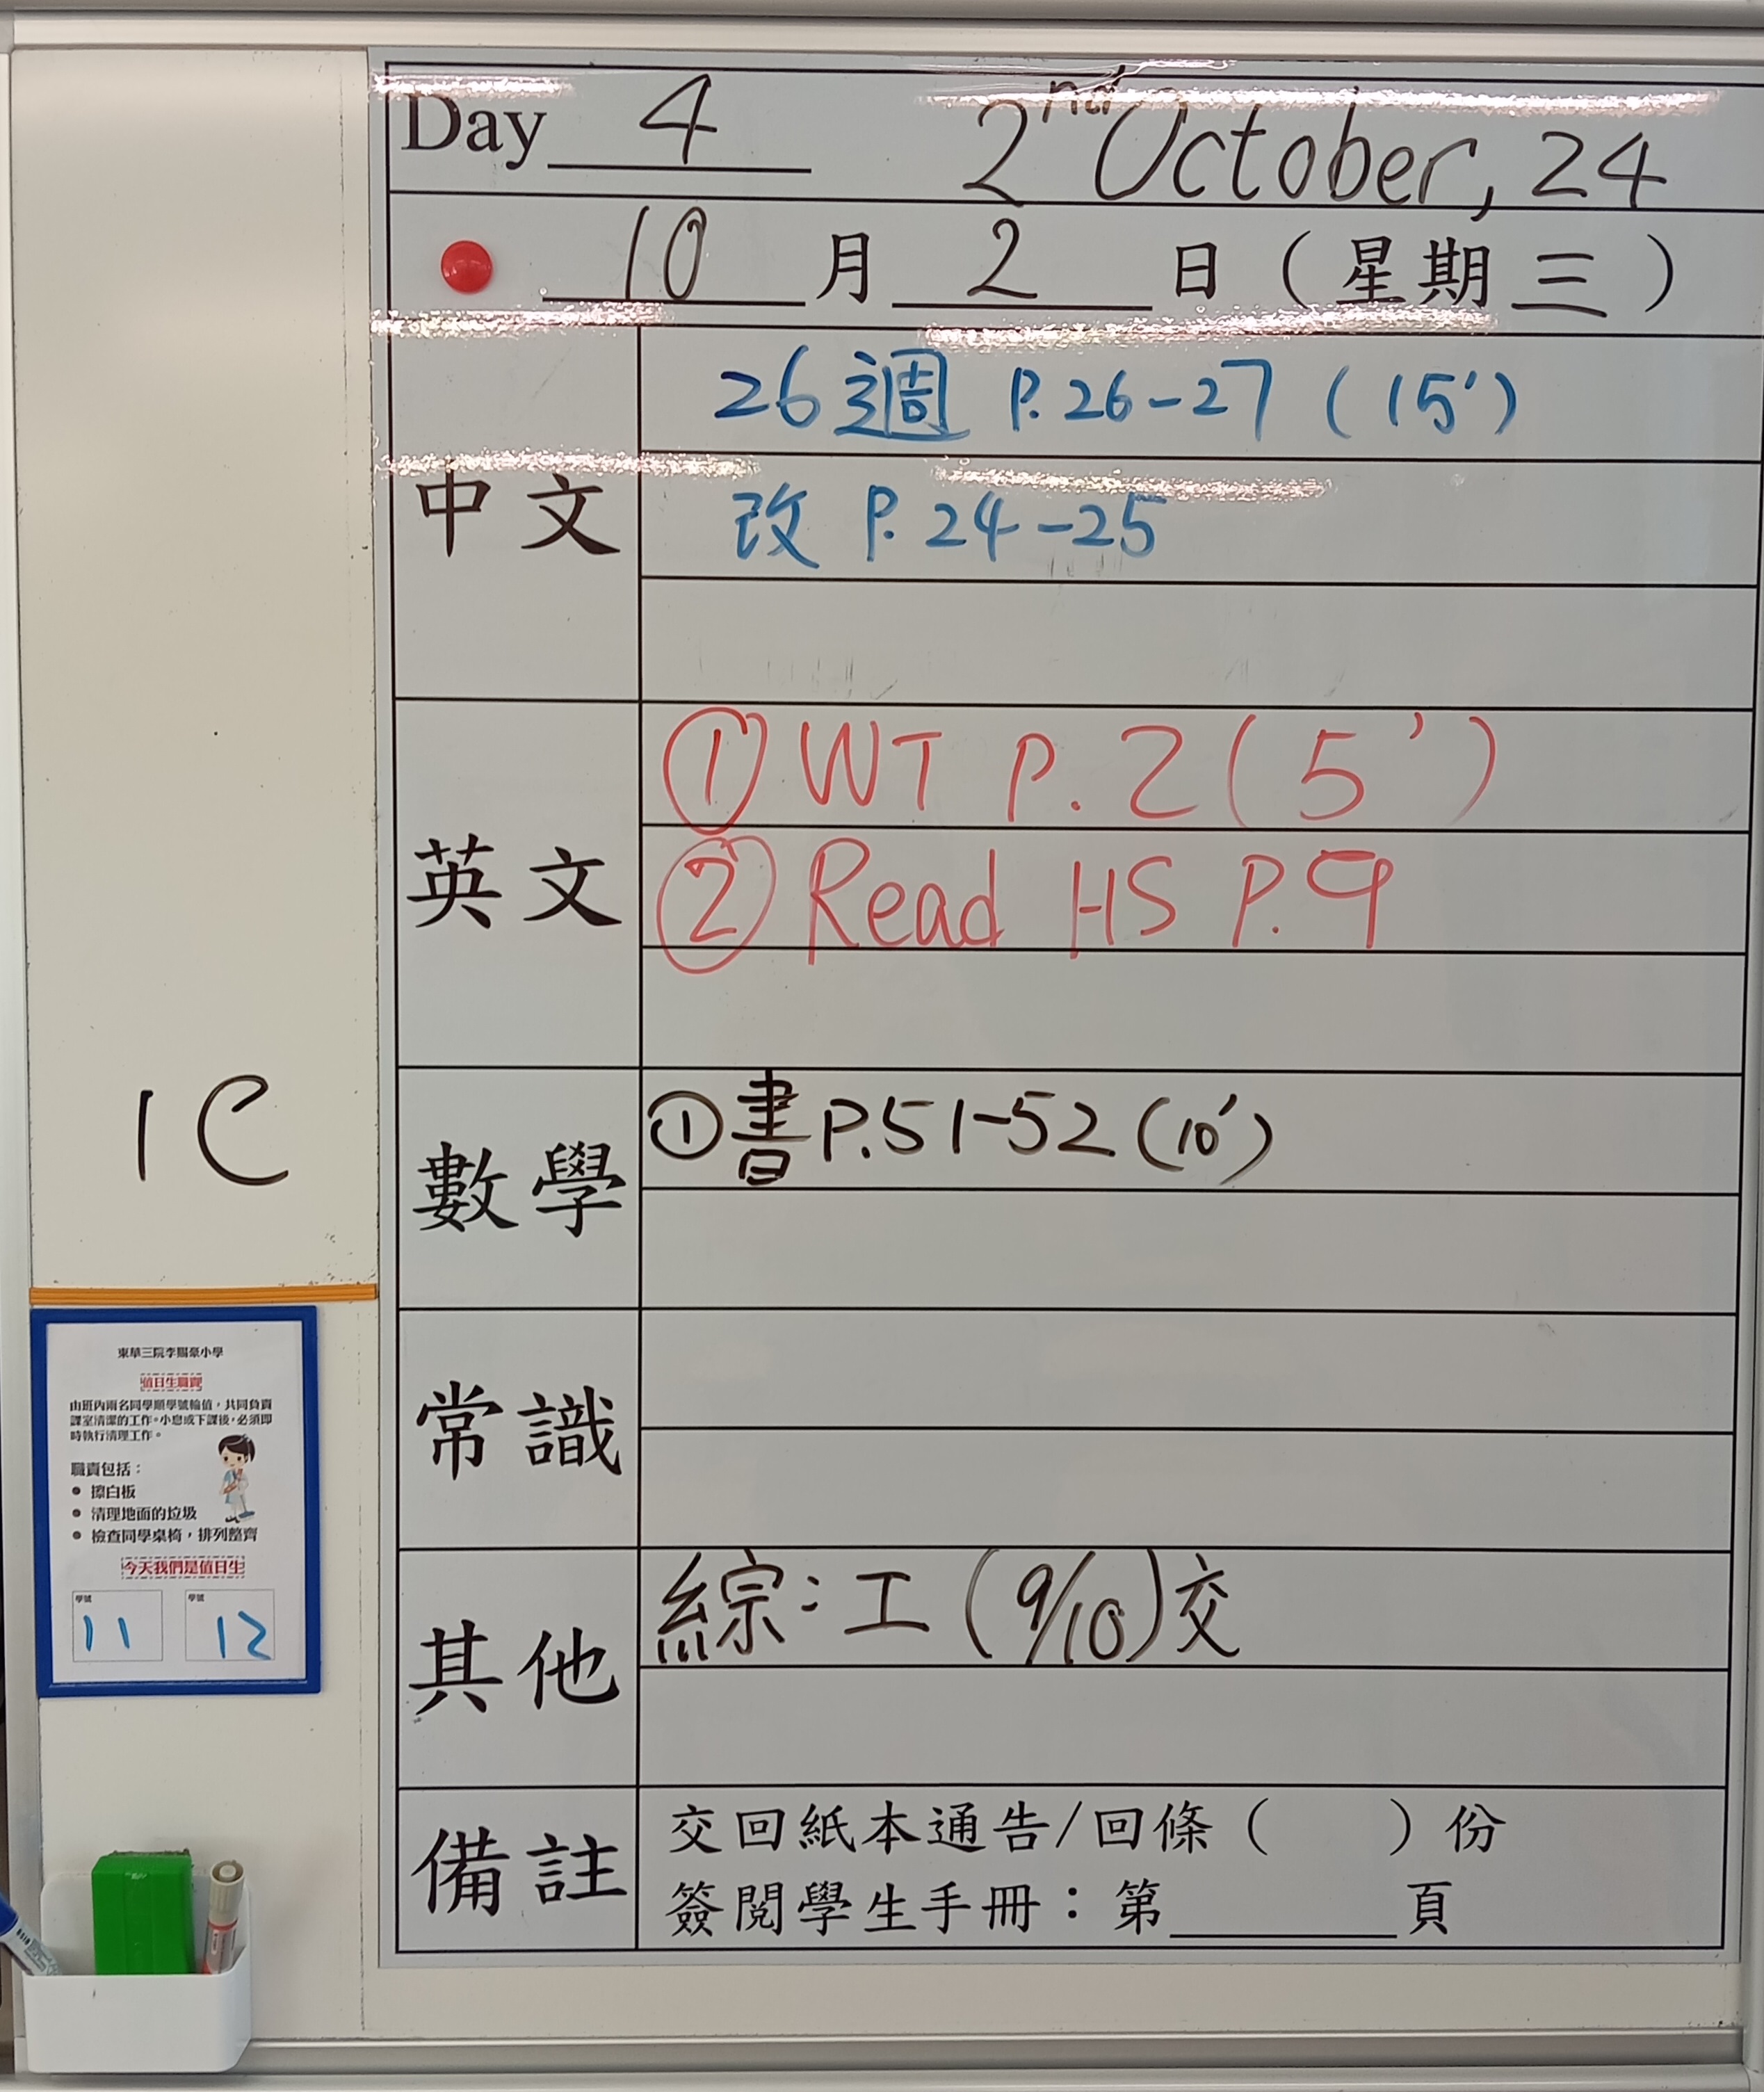 Day 4 2nd October, 24
10 月 2 日 (星期三)
中文
26週 P.26-27 (15')
改 P.24-25
英文
① WT P.2 (5')
② Read HS P.9
數學
① 書 P.51-52 (10')
常識
其他
綜：工 (9/10) 交
備註
交回紙本通告/回條（ ）份
簽閱學生手冊：第______頁
1C
東華三院李賜豪小學
值日生職責
由班內兩名同學順學號輪值，共同負責
課室清潔的工作。小息或下課後，必須即
時執行清理工作。
職責包括：
• 擦白板
• 清理地面的垃圾
• 檢查同學桌椅，排列整齊
今天我們是值日生
學號 學號
11 12